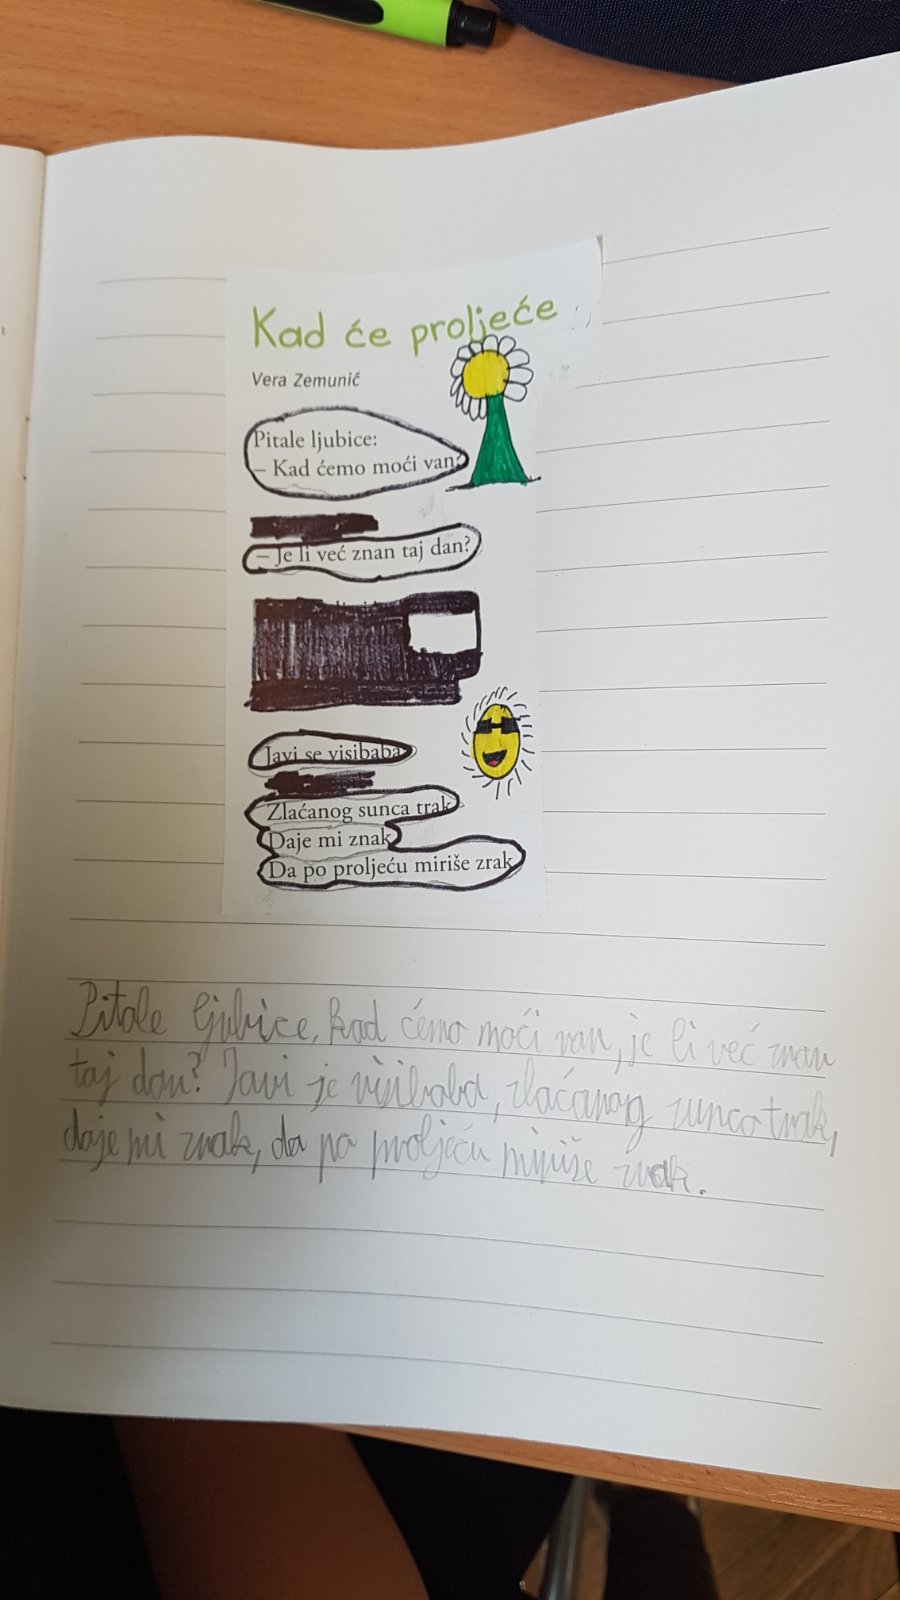 Kad će proljeće
Vera Zemunić
Pitale ljubice:
– Kad ćemo moći van?
– Je li već znan taj dan?
Javi se visibaba
Zlaćanog sunca trak
Daje mi znak
Da po proljeću miriše zrak
Pitale ljubice, kad ćemo moći van, je li već znan
taj dan? Javi se visibaba, zlaćanog sunca trak,
daje mi znak, da po proljeću miriše zrak.